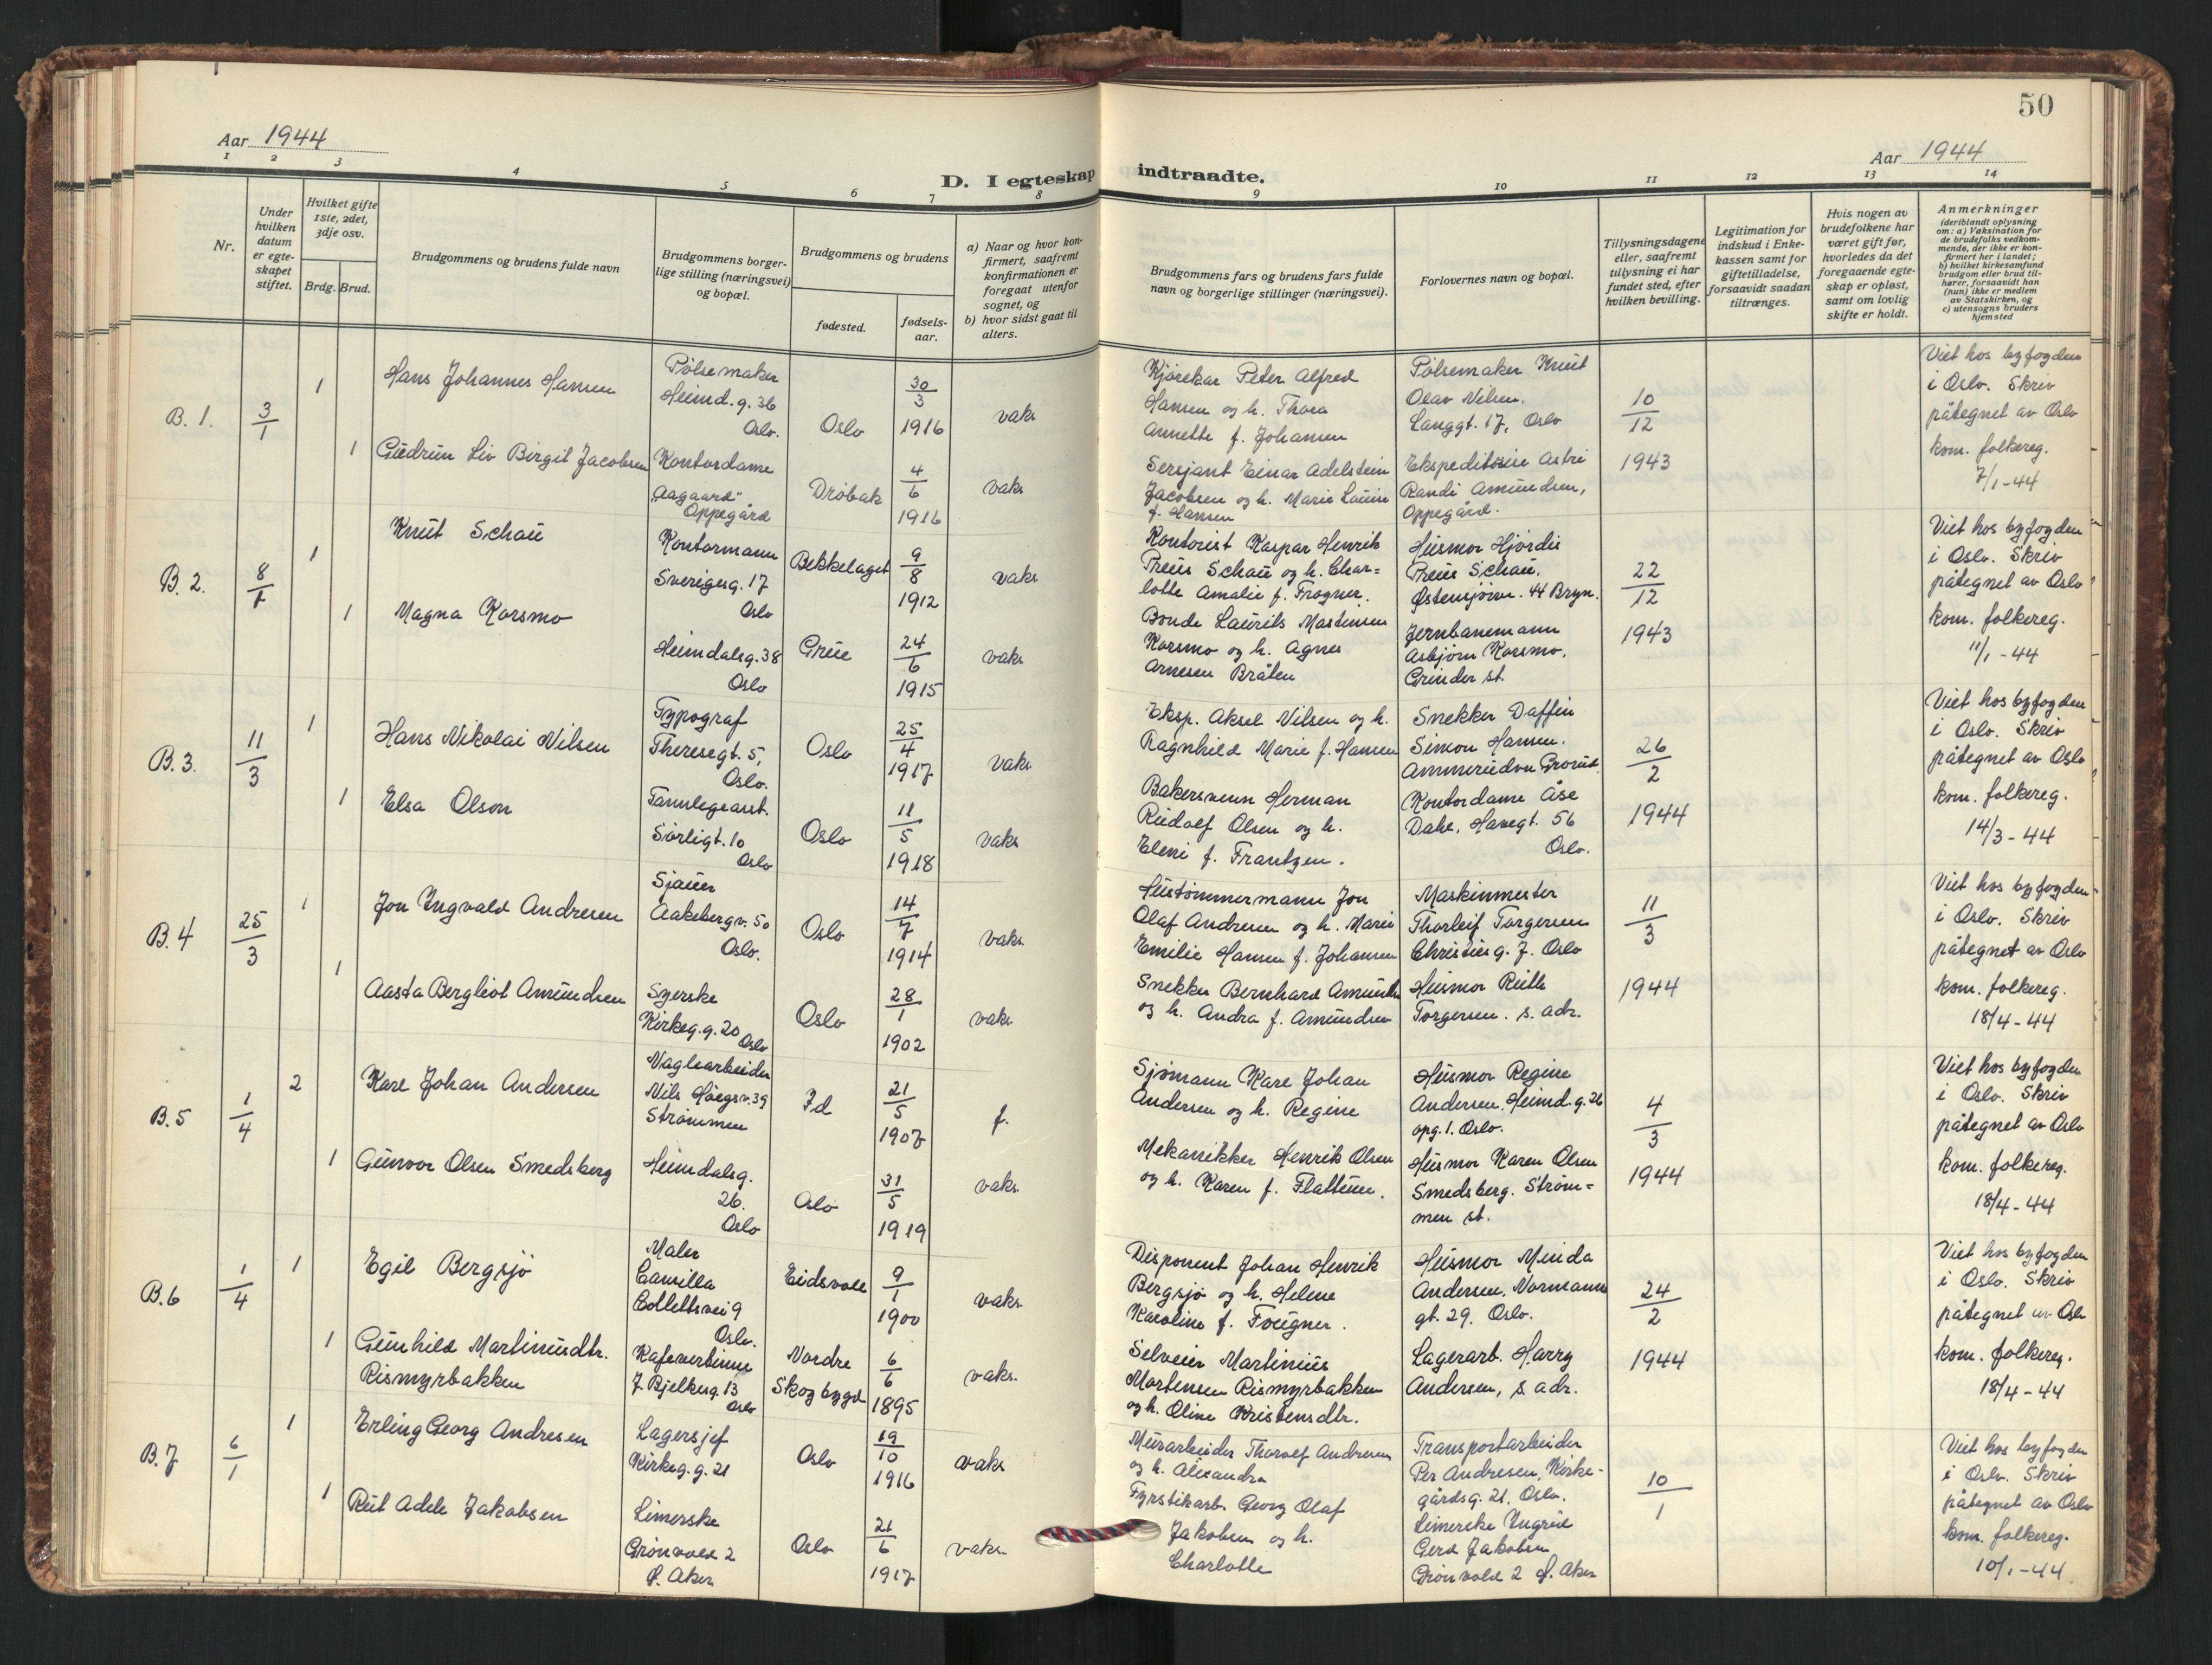 50
Aar 1944
Aar 1944
D. I egteskap indtraadte.
1 2 3 4 5 6 7 8 9 10 11 12 13 14
Nr.
Under
hvilken
datum
er egte-
skapet
stiftet.
Hvilket gifte
1ste, 2det,
3dje osv.
Brdg. Brud.
Brudgommens og brudens fulde navn
Brudgommens borger-
lige stilling (næringsvei)
og bopæl.
Brudgommens og brudens
fødested.
fødsels-
aar.
a) Naar og hvor kon-
firmert, saafremt
konfirmationen er
foregaat utenfor
sognet, og
b) hvor sidst gaat til
alters.
Brudgommens fars og brudens fars fulde
navn og borgerlige stillinger (næringsvei).
Forlovernes navn og bopæl.
Tillysningsdagene
eller, saafremt
tillysning ei har
fundet sted, efter
hvilken bevilling.
Legitimation for
indskud i Enke-
kassen samt for
giftetilladelse,
forsaavidt saadan
tiltrænges.
Hvis nogen av
brudefolkene har
været gift før,
hvorledes da det
foregaaende egte-
skap er opløst,
samt om lovlig
skifte er holdt.
Anmerkninger
(deriblandt oplysning
om: a) Vaksination for
de brudefolks vedkom-
mende, der ikke er kon-
firmert her i landet;
b) hvilket kirkesamfund
brudgom eller brud til-
hører, forsaavidt han
(hun) ikke er medlem
av Statskirken, og
c) utensogns bruders
hjemsted
B. 1.
3/1
1
Hans Johannes Hansen
Pølsemaker
Heimd.g. 36
Oslo.
Oslo
30/3
1916
vaks
Kjørekar Peter Alfred
Hansen og h. Thora
Annette f. Johansen
Pølsemaker Knut
Olav Nilsen,
Langgt. 17, Oslo
10/12
1943
Viet hos byfogden
i Oslo. Skriv
påtegnet av Oslo
kom. folkereg.
7/1-44
1
Gudrun Liv Birgit Jacobsen
Kontordame
"Aagaard"
Oppegård
Drøbak
4/6
1916
vaks
Sersjant Einar Adelstein
Jacobsen og h. Marie Louise
f. Hansen
Ekspeditrise Astri
Randi Amundsen,
Oppegård.
B. 2.
8/1
1
Knut Schau
Kontormann
Sverigesg. 17
Oslo
Bekkelaget
9/8
1912
vaks
Kontorist Kaspar Henrik
Preus Schau og h. Char=
lotte Amalie f. Frogner.
Husmor Hjørdis
Preus Schau,
Østensjøvn. 44 Bryn.
22/12
1943
Viet hos byfogden
i Oslo. Skriv
påtegnet av Oslo
kom. folkereg.
11/1-44
1
Magna Korsmo
Heimdalsg. 38
Oslo
Grue
24/6
1915
vaks
Bonde Laurits Martinsen
Korsmo og h. Agnes
Arnesen Bråten
Jernbanemann
Asbjørn Korsmo,
Grinder st.
B. 3.
11/3
1
Hans Nikolai Nilsen
Typograf
Theresegt. 5,
Oslo.
Oslo
25/4
1917
vaks
Eksp. Aksel Nilsen og h.
Ragnhild Marie f. Hansen
Snekker Daffin
Simon Hansen.
Ammerudvn Grorud.
26/2
1944
Viet hos byfogden
i Oslo. Skriv
påtegnet av Oslo
kom. folkereg.
14/3-44
1
Elsa Olson
Tannlegeasst.
Sørligt. 10
Oslo
Oslo
11/5
1918
vaks
Bakersvenn Herman
Rudolf Olsen og h.
Eleni f. Frantzen.
Kontordame Åse
Dahl, Havegt. 56
Oslo.
B. 4
25/3
1
Jon Ingvald Andresen
Sjauer
Aakebergv. 50
Oslo.
Oslo
14/7
1914
vaks
Hustømmermann Jon
Olaf Andresen og h. Marie
Emilie Hansen f. Johansen
Maskinmester
Thorleif Torgersen
Christiesg. 7. Oslo
11/3
1944
Viet hos byfogden
i Oslo. Skriv
påtegnet av Oslo
kom. folkereg.
18/4-44
1
Aasta Bergliot Amundsen
Syerske
Kirkeg.g. 20
Oslo
Oslo
28/1
1902
vaks
Snekker Bernhard Amundsen
og h. Andra f. Amundsen
Husmor Ruth
Torgersen. s. adr.
B. 5
1/4
2
Kare Johan Andersen
Naglearbeider
Nils Høegsv. 39
Strømmen
Id
21/5
1907
f.
Sjømann Kare Johan
Andersen og h. Regine
Husmor Regine
Andersen, Heimd.g. 26
opg. 1. Oslo.
4/3
1944
Viet hos byfogden
i Oslo. Skriv
påtegnet av Oslo
kom. folkereg.
18/4-44
1
Gunvor Olsen Smedsberg
Heimdalsg.
26.
Oslo
Oslo
31/5
1919
vaks.
Mekanikker Henrik Olsen
og h. Karen f. Flattum.
Husmor Karen Olsen
Smedsberg. Strøm=
men st.
B. 6
1/4
1
Egil Bergsjø
Maler
Camilla
Colletts vei 9
Oslo.
Eidsvoll
9/1
1900
vaks.
Disponent Johan Henrik
Bergsjø og h. Helene
Karoline f. Fougner.
Husmor Minda
Andersen, Normanns
gt. 29. Oslo.
24/2
1944
Viet hos byfogden
i Oslo. Skriv
påtegnet av Oslo
kom. folkereg.
18/4-44
1
Gunhild Martinusdtr.
Rismyrbakken
Kafevertinne
J. Bjelkesg. 13
Oslo
Nordre
Skogbygd
6/6
1895
vaks.
Selveier Martinius
Mortensen Rismyrbakken
og h. Oline Kristensdtr.
Lagerarb. Harry
Andersen, s. adr.
B. 7
6/1
1
Erling Georg Andresen
Lagersjef
Kirkeg.g. 21
Oslo
19/10
1916
vaks
Murarbeider Thorolf Andresen
og h. Alexandra
Transportarbeider
Per Andresen, Kirke-
gårdsg. 21, Oslo.
10/1
Viet hos byfogden
i Oslo. Skriv
påtegnet av Oslo
kom. folkereg.
10/1-44
1
Rut Adele Jakobsen
Limerske
Grønvold 2
Ø. Aker
Oslo
21/6
1917
vaks.
Fyrstikarb. Georg Olaf
Jakobsen og h.
Charlotte
Limerske Ingrid
Gerd Jakobsen
Grønvold 2 Ø. Aker